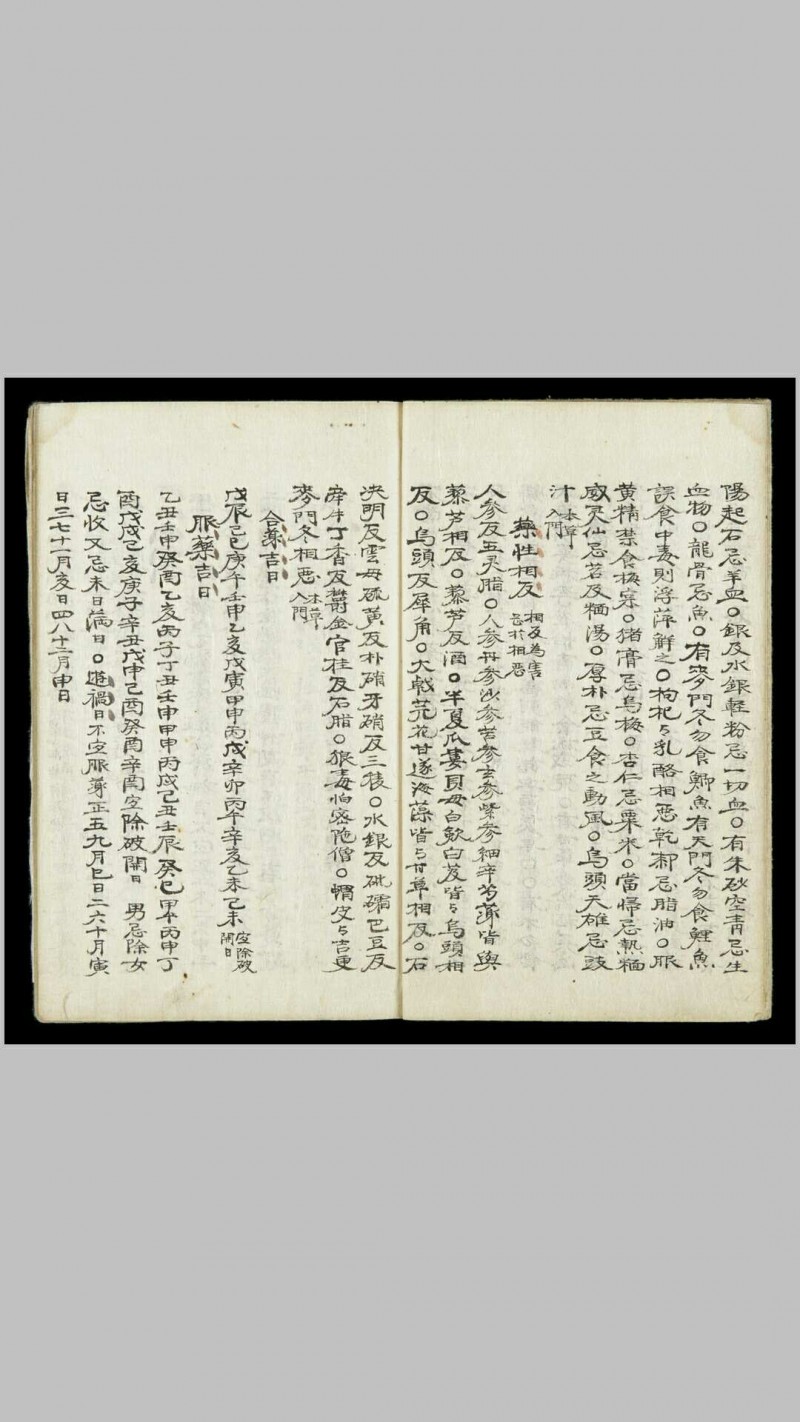 陽起石忌羊血○銀及水銀輕粉忌一切血○有朱砂空靑忌生
血物○龍骨忌魚○有麥門冬勿食鯽魚有天門冬勿食鯉魚
誤食中毒則浮萍解之○枸杞与乳酪相惡乾柹忌脂油○服
黃精禁食梅實○猪膏忌烏梅○杏仁忌粟米○當歸忌熱糆
威灵仙忌茗及糆湯○厚朴忌豆食之動風○烏頭天雄忌豉
汁本草入門
藥性相反 相反為害甚於相惡
人參反五灵脂○人參丹參沙參苦參玄參紫參細辛芍藥皆與
藜芦相反○藜芦反酒○半夏瓜蔞貝母白歛白芨皆与烏頭相
反○烏頭反犀角○大戟芫花甘遂海藻皆与甘草相反○石
決明反雲母硫黃反朴硝牙硝反三稜○水銀反砒礵巴豆反
牽牛丁香反欝金官桂反石脂○狼毒怕密陁僧○蝟皮与吉更
麥門冬相惡本草入門
合藥吉日
戊辰己巳庚午壬申乙亥戊寅甲申丙戌辛卯丙午辛亥乙未己未宜除破開日
服藥吉日
乙丑壬申癸酉乙亥丙子丁丑壬申甲申丙戌己丑壬辰癸巳甲午丙申丁
酉戊戌己亥庚子辛丑戊申己酉癸酉辛酉宜除破開日 男忌除女
忌收又忌未日滿日○遊禍日不宜服藥正五九月巳日二六十月寅
日三七十一月亥日四八十二月申日